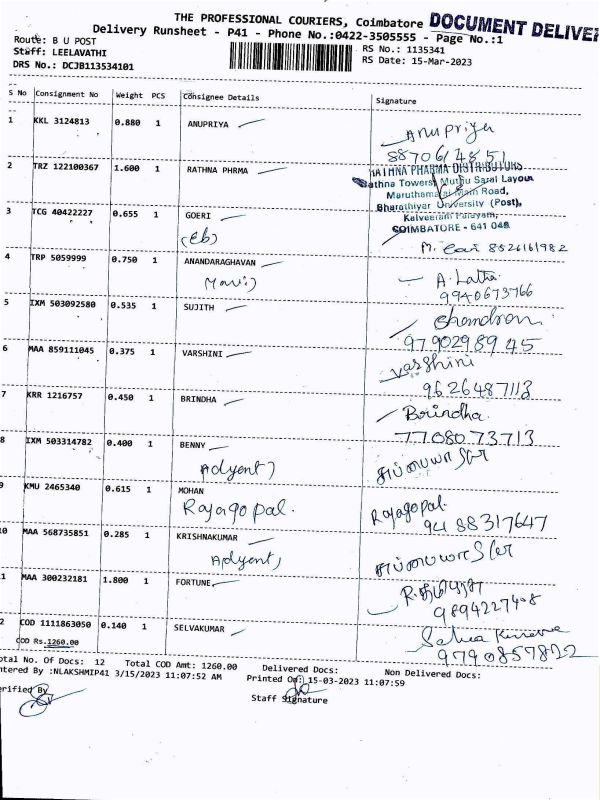 THE PROFESSIONAL COURIERS, Coimbatore DOCUMENT DELIVER
Delivery Runsheet - P41 - Phone No.:0422-3505555 - Page No.:1
Route: B U POST
Staff: LEELAVATHI
RS No.: 1135341
DRS No.: DCJB113534101
RS Date: 15-Mar-2023
S No Consignment No Weight PCS Consignee Details Signature
1 KKL 3124813 0.880 1 ANUPRIYA Anupriya
88706/4851
2 TRZ 122100367 1.600 1 RATHNA PHRMA RATHNA PHARMA DISTRIBUTORS
Rathna Towers, Muthu Saral Layout
Maruthamalai Main Road,
Bharathiyar University (Post),
Kalveeram Palayam,
COIMBATORE - 641 046
3 TCG 40422227 0.655 1 GOERI
(Eb)
8526161982
4 TRP 5059999 0.750 1 ANANDARAGHAVAN A. Latha
9940673766
5 IXM 503092580 0.535 1 SUJITH Chandran
9790298945
6 MAA 859111045 0.375 1 VARSHINI Varshini
9626487113
7 KRR 1216757 0.450 1 BRINDHA Brindha
7708073713
8 IXM 503314782 0.400 1 BENNY
Adyent)
9 KMU 2465340 0.615 1 MOHAN
Rajagopal. Rajagopal.
9488317647
10 MAA 568735851 0.285 1 KRISHNAKUMAR
Adyent)
11 MAA 300232181 1.800 1 FORTUNE
9894227408
12 COD 1111863050 0.140 1 SELVAKUMAR
COD Rs.1260.00
9790857822
otal No. Of Docs: 12 Total COD Amt: 1260.00 Delivered Docs: Non Delivered Docs:
ntered By :NLAKSHMIP41 3/15/2023 11:07:52 AM Printed On: 15-03-2023 11:07:59
erified By Staff Signature